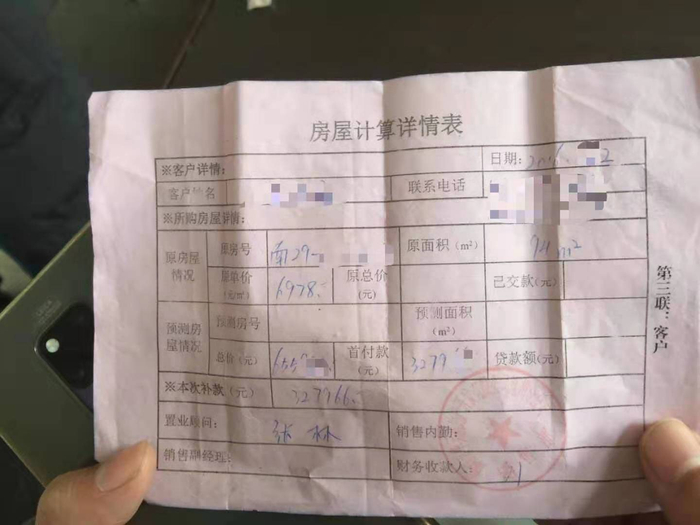 房屋计算详情表
※客户详情:
日期:
客户姓名
联系电话
※所购房屋详情:
原房屋情况
原房号
南29-
原面积(m²)
94m²
原单价(元/㎡)
6978.
原总价(元)
已交款(元)
预测房屋情况
预测房号
预测面积(m²)
总价(元)
首付款(元)
3279
贷款额(元)
※本次补款(元)
327966.
置业顾问:
张林
销售内勤:
销售副经理:
财务收款人:
第三联:客户